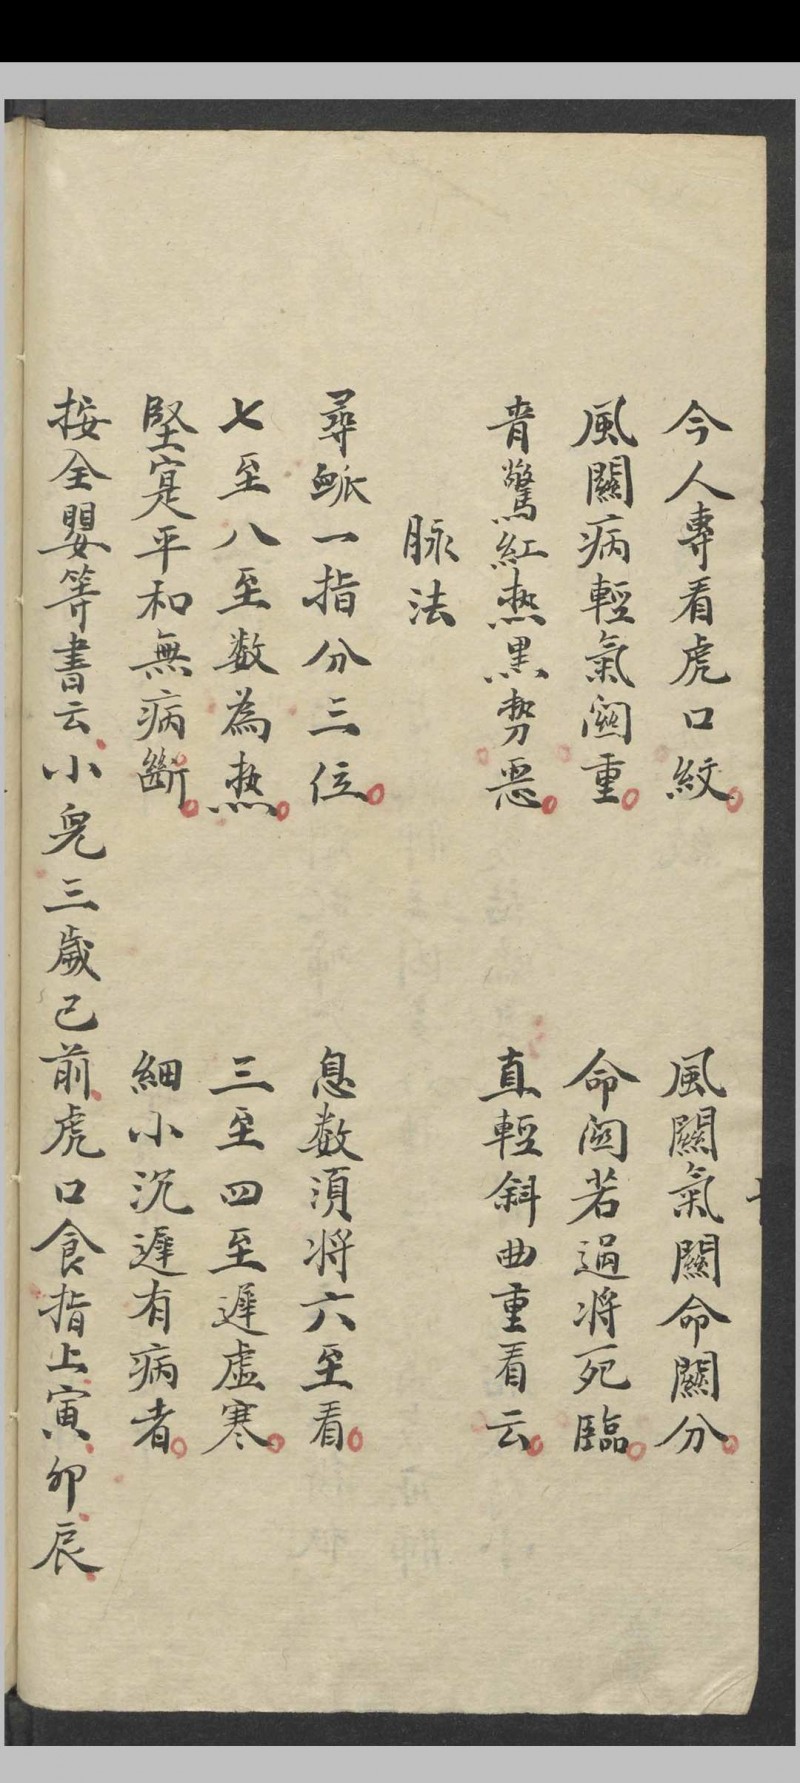 今人專看虎口紋。風關氣關命關分。
風關病輕氣関重。命関若過將死臨。
青驚紅热黒勢惡。直輕斜曲重看云。
脉法
尋脈一指分三位。息数須将六至看。
七至八至数為热。三至四至遲虛寒。
堅寔平和無病斷。細小沉遲有病者。
按全嬰等書云小兒三歲已前虎口食指上寅卯辰